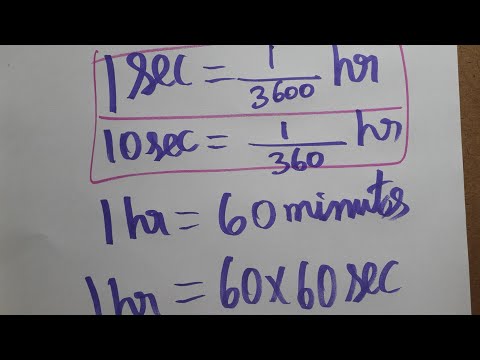 1 sec = 1/3600 hr
10 sec = 1/360 hr
1 hr = 60 minutes
1 hr = 60 x 60 sec